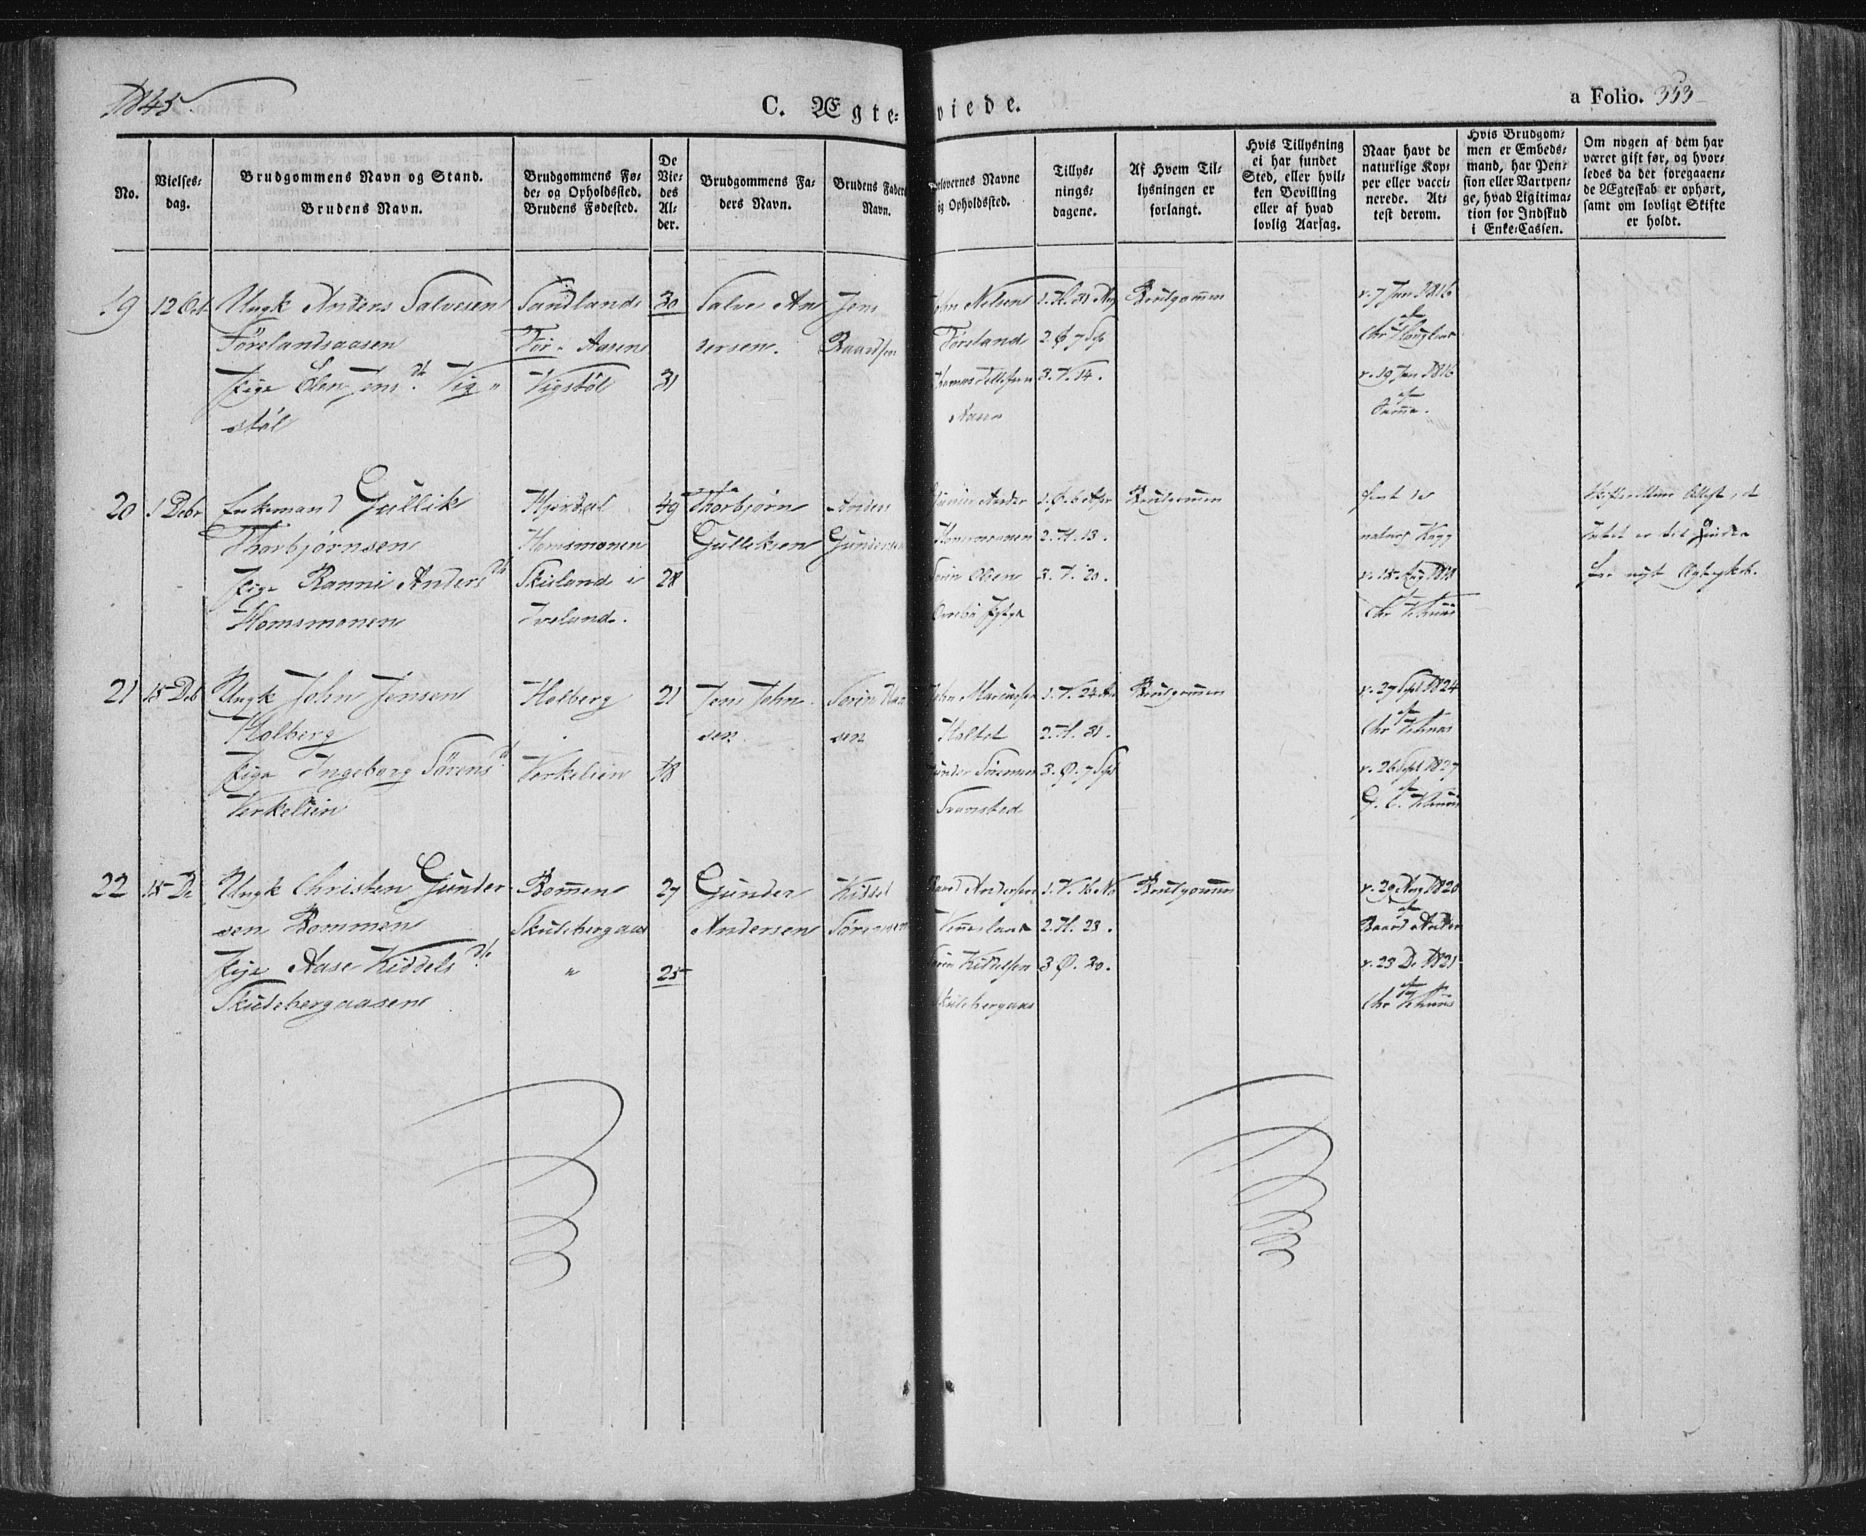 1845.
C. Ægte-viede.
a Folio. 353
No.
Vielses-
dag.
Brudgommens Navn og Stand.
Brudens Navn.
Brudgommens Fø-
de- og Opholdssted.
Brudens Fødested.
De
Vie-
des
Al-
der.
Brudgommens Fa-
ders Navn.
Brudens Faders
Navn.
Forlovernes Navne
og Opholdssted.
Tillys-
nings-
dagene.
Af Hvem Til-
lysningen er
forlangt.
Hvis Tillysning
ei har fundet
Sted, eller hvil-
ken Bevilling
eller af hvad
lovlig Aarsag.
Naar havt de
naturlige Kop-
per eller vacci-
nerede. At-
test derom.
Hvis Brudgom-
men er Embeds-
mand, har Pen-
sion eller Vartpen-
ge, hvad Ligitima-
tion for Indskud
i Enke-Cassen.
Om nogen af dem har
været gift før, og hvor-
ledes da det foregaaen-
de Ægteskab er ophørt,
samt om lovligt Skifte
er holdt.
19
12 Oct
Ungk Anders Salvesen
Førelandsaasen
Pige Jens Dtr Vig-
støl
Sandland
Før- Aasen
Vigstøl
30
31
Salve An
dersen.
Jens
Baardsen
John Nelsen
Føreland
Thomas Tellefsen
1. H. 31 Aug
2. Ø 7 Sep
3. V. 14.
Brudgommen
v. 7 Jun 1816
af
v. 19 Jun 1816
af
Samme.
20
1 Debr
Enkemand Gullik
Thorbjørnsen
Pige Ranni Anders Dtr
Homsmonen
Hjerdal
Homsmonen
Skisland i
Iveland.
49
28
Thorbjørn
Gulleksen
Anders
Gundersen
Gunder Ander
Homsmonen
Sorin Olsen
1. Ø. 6 Apr
2. H. 13.
3. V. 20.
Brudgommen
havt de
naturl Kopp
v. 15 Aug 1818
af
21
15 Deb
Ungk John Jensen
Holberg
Pige Ingeborg Sörens D
Verkelien
Holberg
Verkelien
21
18
Jens John
sen
Sören Han
sen
John Marcussen
Holtet
Gunder Sörensen
1. V. 24 Au
2. H. 31.
3. Ø. 7 Sept
Brudgommen
v. 27 Sept 1824
af
v. 26 Sept 1827
af
22
15 De
Ungk Christen Gunder
sen Rommen
Pige Aase Kiddels Dtr
Skutebergaasen
Rommen
Skutebergaas
"
27
25
Gunder
Andersen
Kiddel
Sörensen
Baard Andersen
Venesland
Sören Kiddelsen
Skutebergaas
1. V. 16 No
2. H. 23.
3 Ø. 30.
Brudgommen
v. 29 Aug 1820
af
Baard Ander
v. 23 De 1821
af